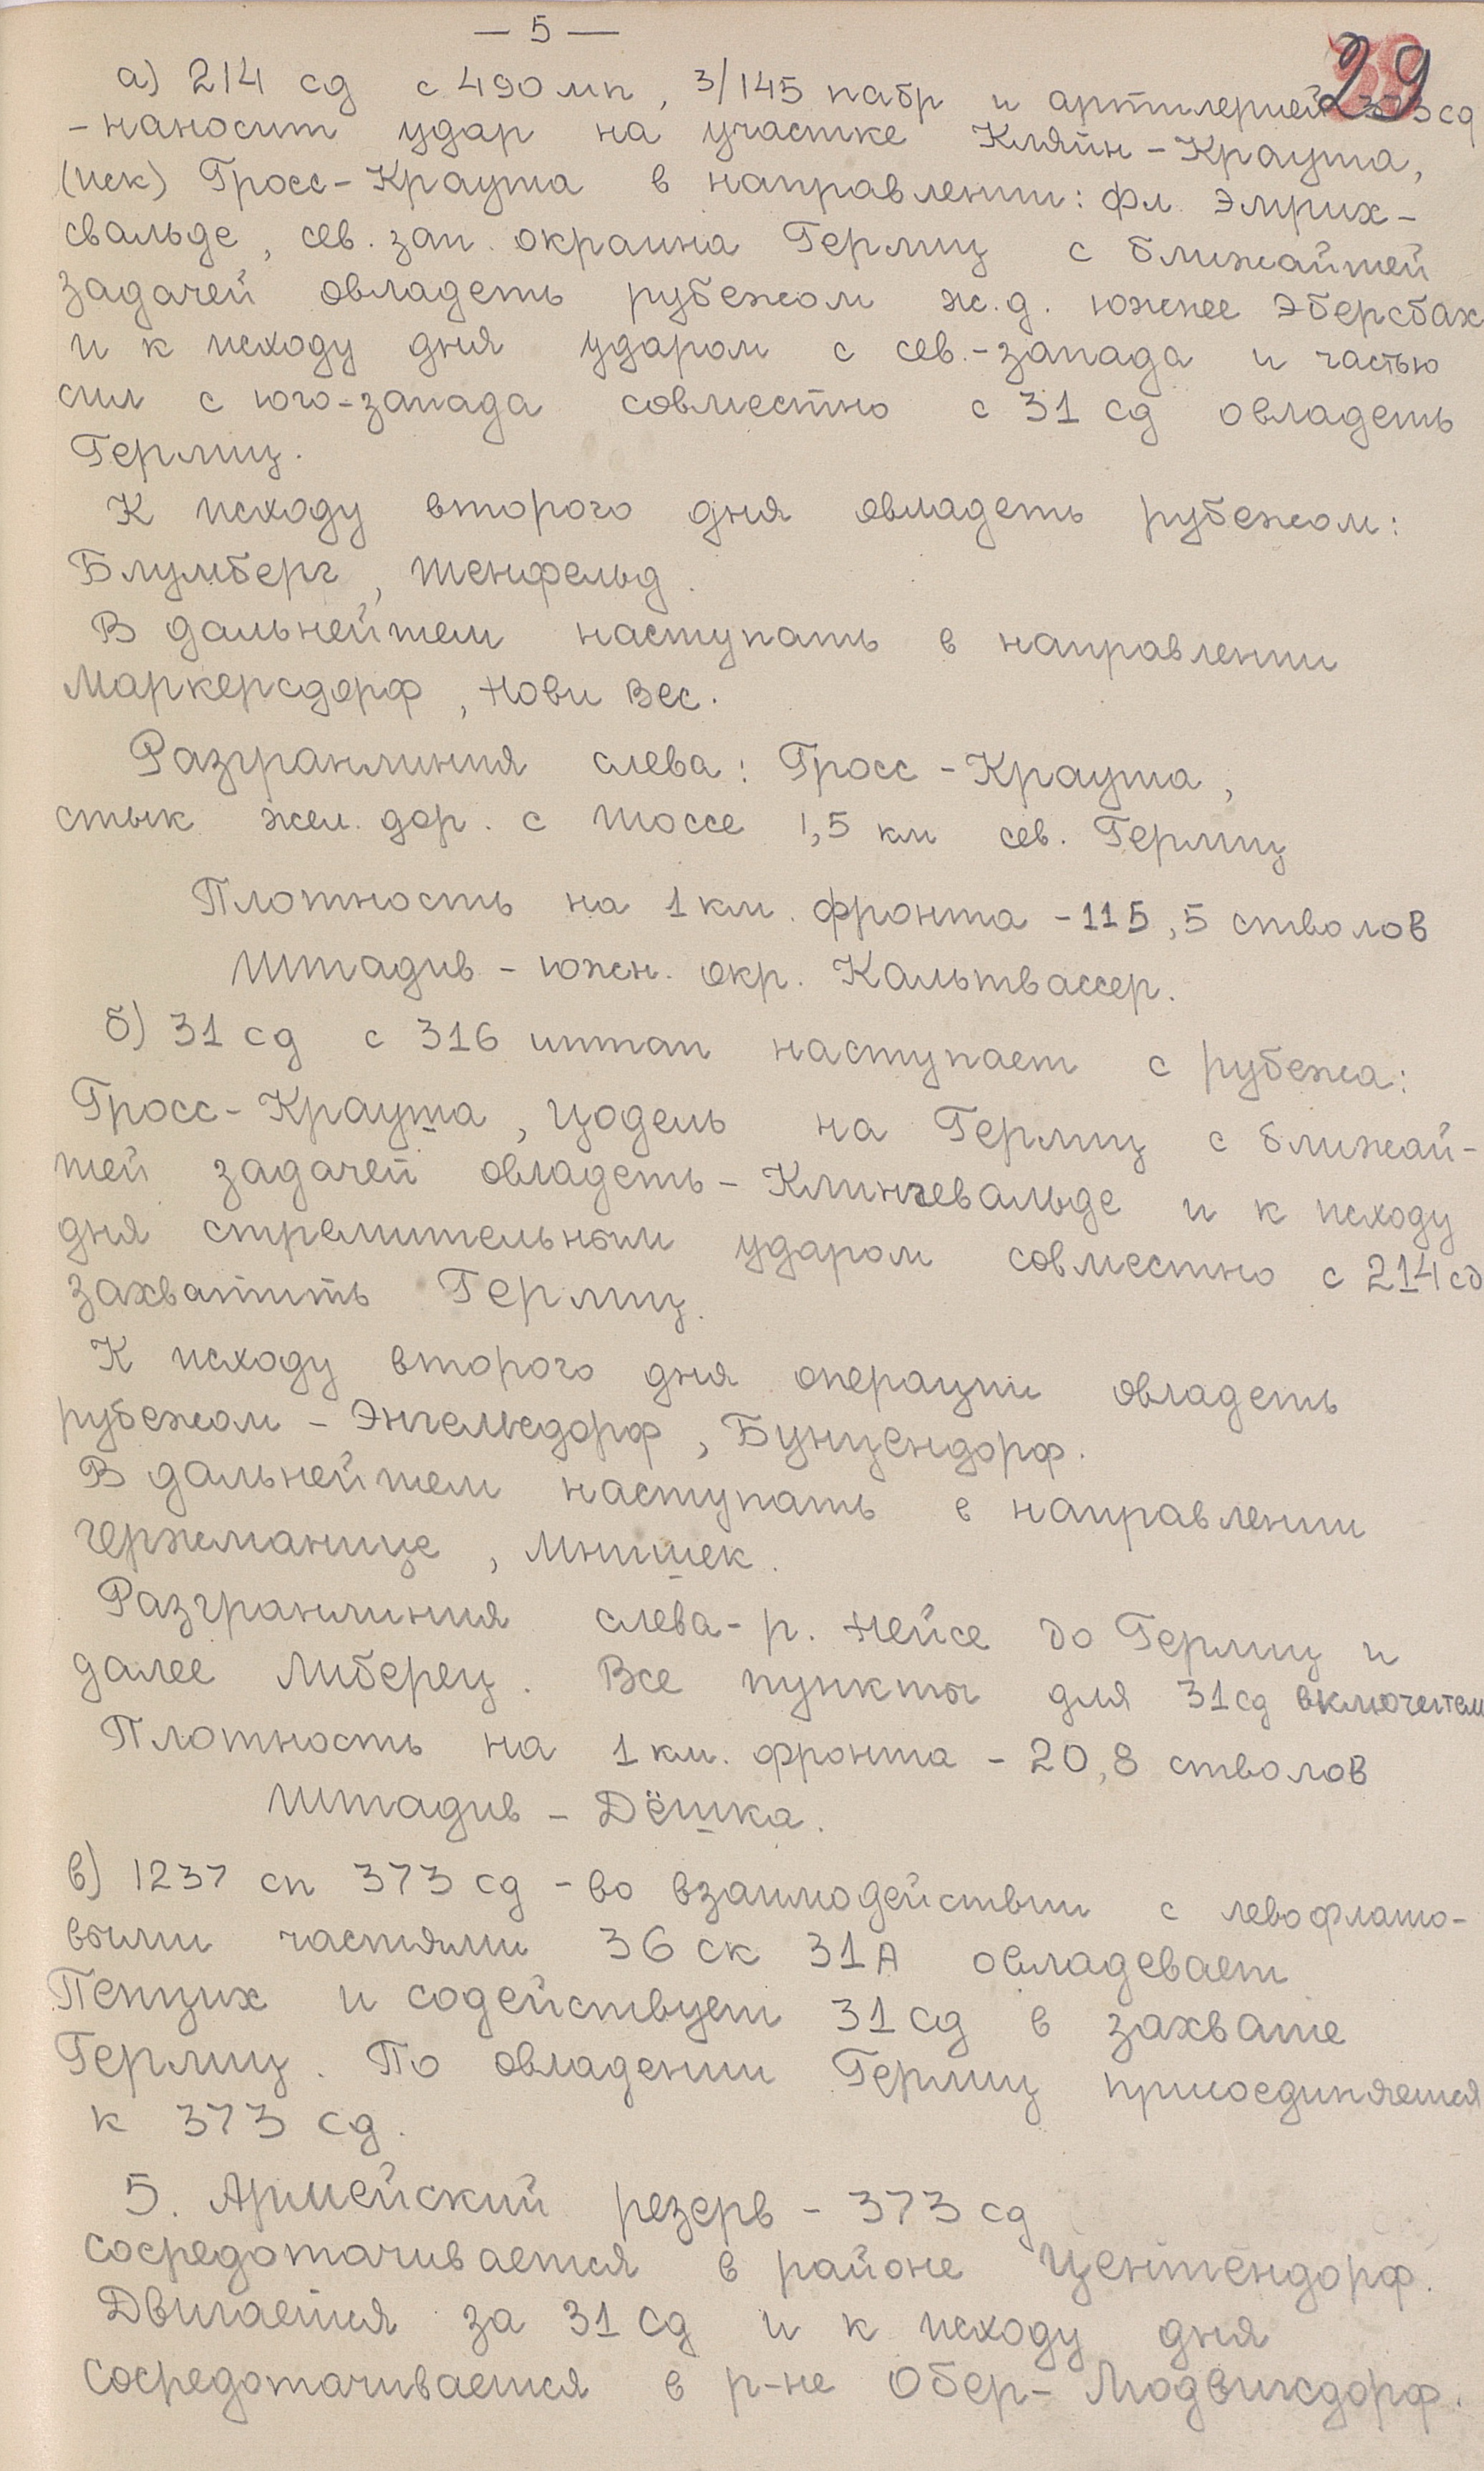 — 5 —
29
а) 214 сд с 490 мп, 3/145 пабр и артилерией 373 сд
- наносит удар на участке Кляйн-Крауша,
(иск) Гросс-Крауша в направлении: Фл. Эмрих-
свальде, сев. зап. окраина Герлиц с ближайшей
задачей овладеть рубежом ж.д. южнее Эберсбах
и к исходу дня ударом с сев.-запада и частью
сил с юго-запада совместно с 31 сд овладеть
Герлиц.
К исходу второго дня овладеть рубежом:
Блумберг, Шенфельд.
В дальнейшем наступать в направлении
Маркерсдорф, Нови Вес.
Разгранлиния слева: Гросс-Крауша,
стык жел. дор. с шоссе 1,5 км сев. Герлиц
Плотность на 1 км. фронта - 115,5 стволов
Штадив - южн. окр. Кальтвассер.
б) 31 сд с 316 иптап наступает с рубежа:
Гросс-Крауша, Цодель на Герлиц с ближай-
шей задачей овладеть - Клингевальде и к исходу
дня стремительным ударом совместно с 214 сд
захватить Герлиц.
К исходу второго дня операции овладеть
рубежом - Энгельсдорф, Бунцендорф.
В дальнейшем наступать в направлении
Гержманице, Мнишек.
Разгранлиния слева - р. Нейсе до Герлиц и
далее Либерец. Все пункты для 31 сд включител
Плотность на 1 км. фронта - 20,8 стволов
Штадив - Дёшка.
в) 1237 сп 373 сд - во взаимодействии с левофланго-
выми частями 36 ск 31 А овладевает
Пенцих и содействует 31 сд в захвате
Герлиц. По овладении Герлиц присоединяется
к 373 сд.
5. Армейский резерв - 373 сд
сосредотачивается в районе Центендорф.
Двигается за 31 сд и к исходу дня
сосредотачивается в р-не Обер-Людвигсдорф.